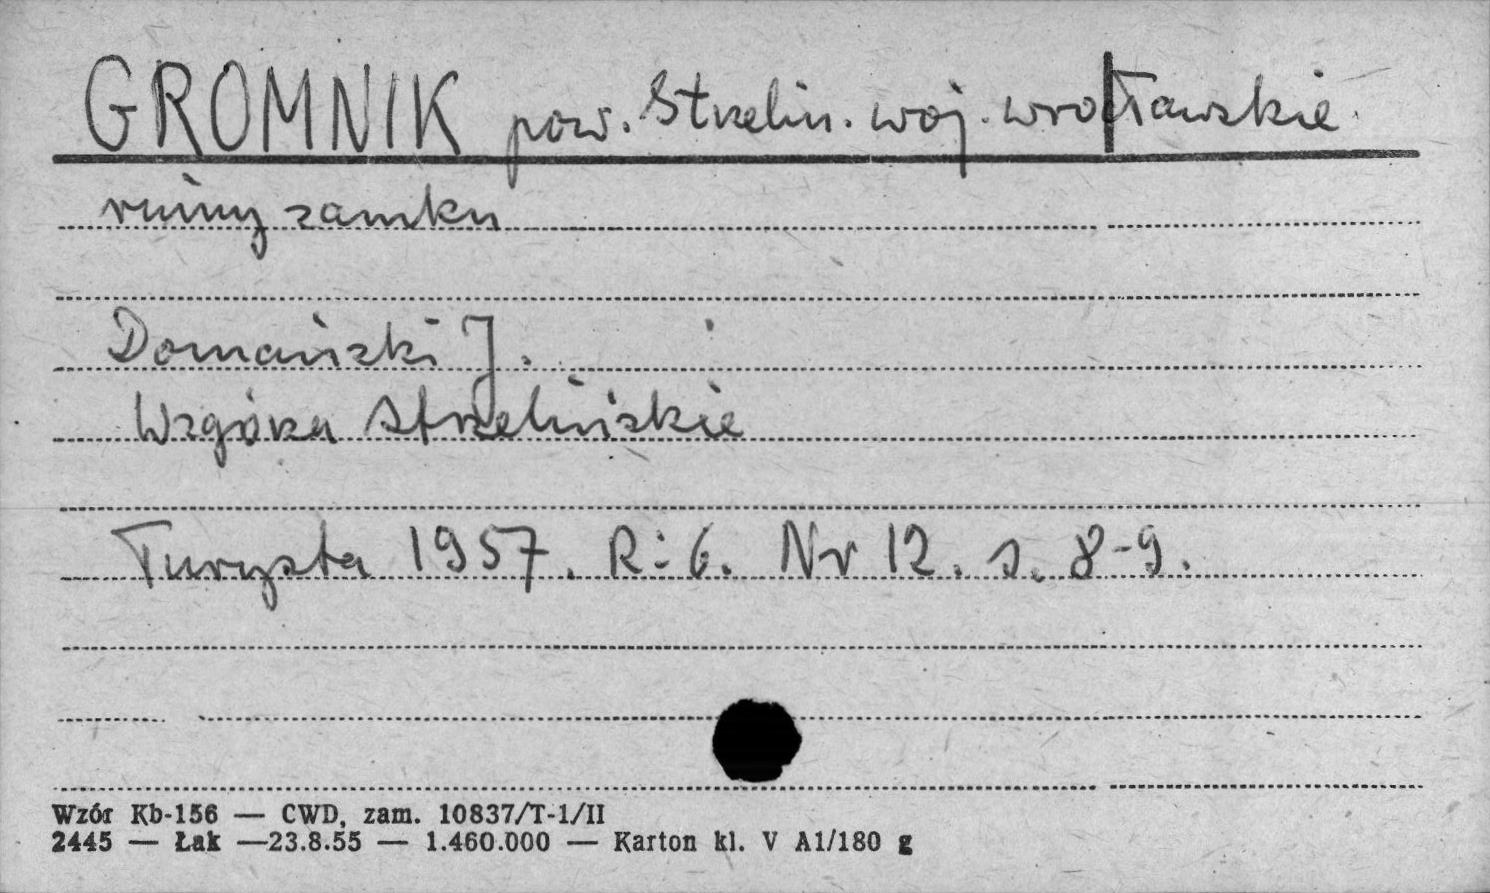 GROMNIK pow. Strzelin. woj. wrocławskie.
ruiny zamku
Domański J.
Wzgórza Strzelińskie
Turysta 1957. R: 6. Nr 12. s. 8-9.
Wzór Kb-156 — CWD, zam. 10837/T-1/II
2445 — Łak —23.8.55 — 1.460.000 — Karton kl. V A1/180 g